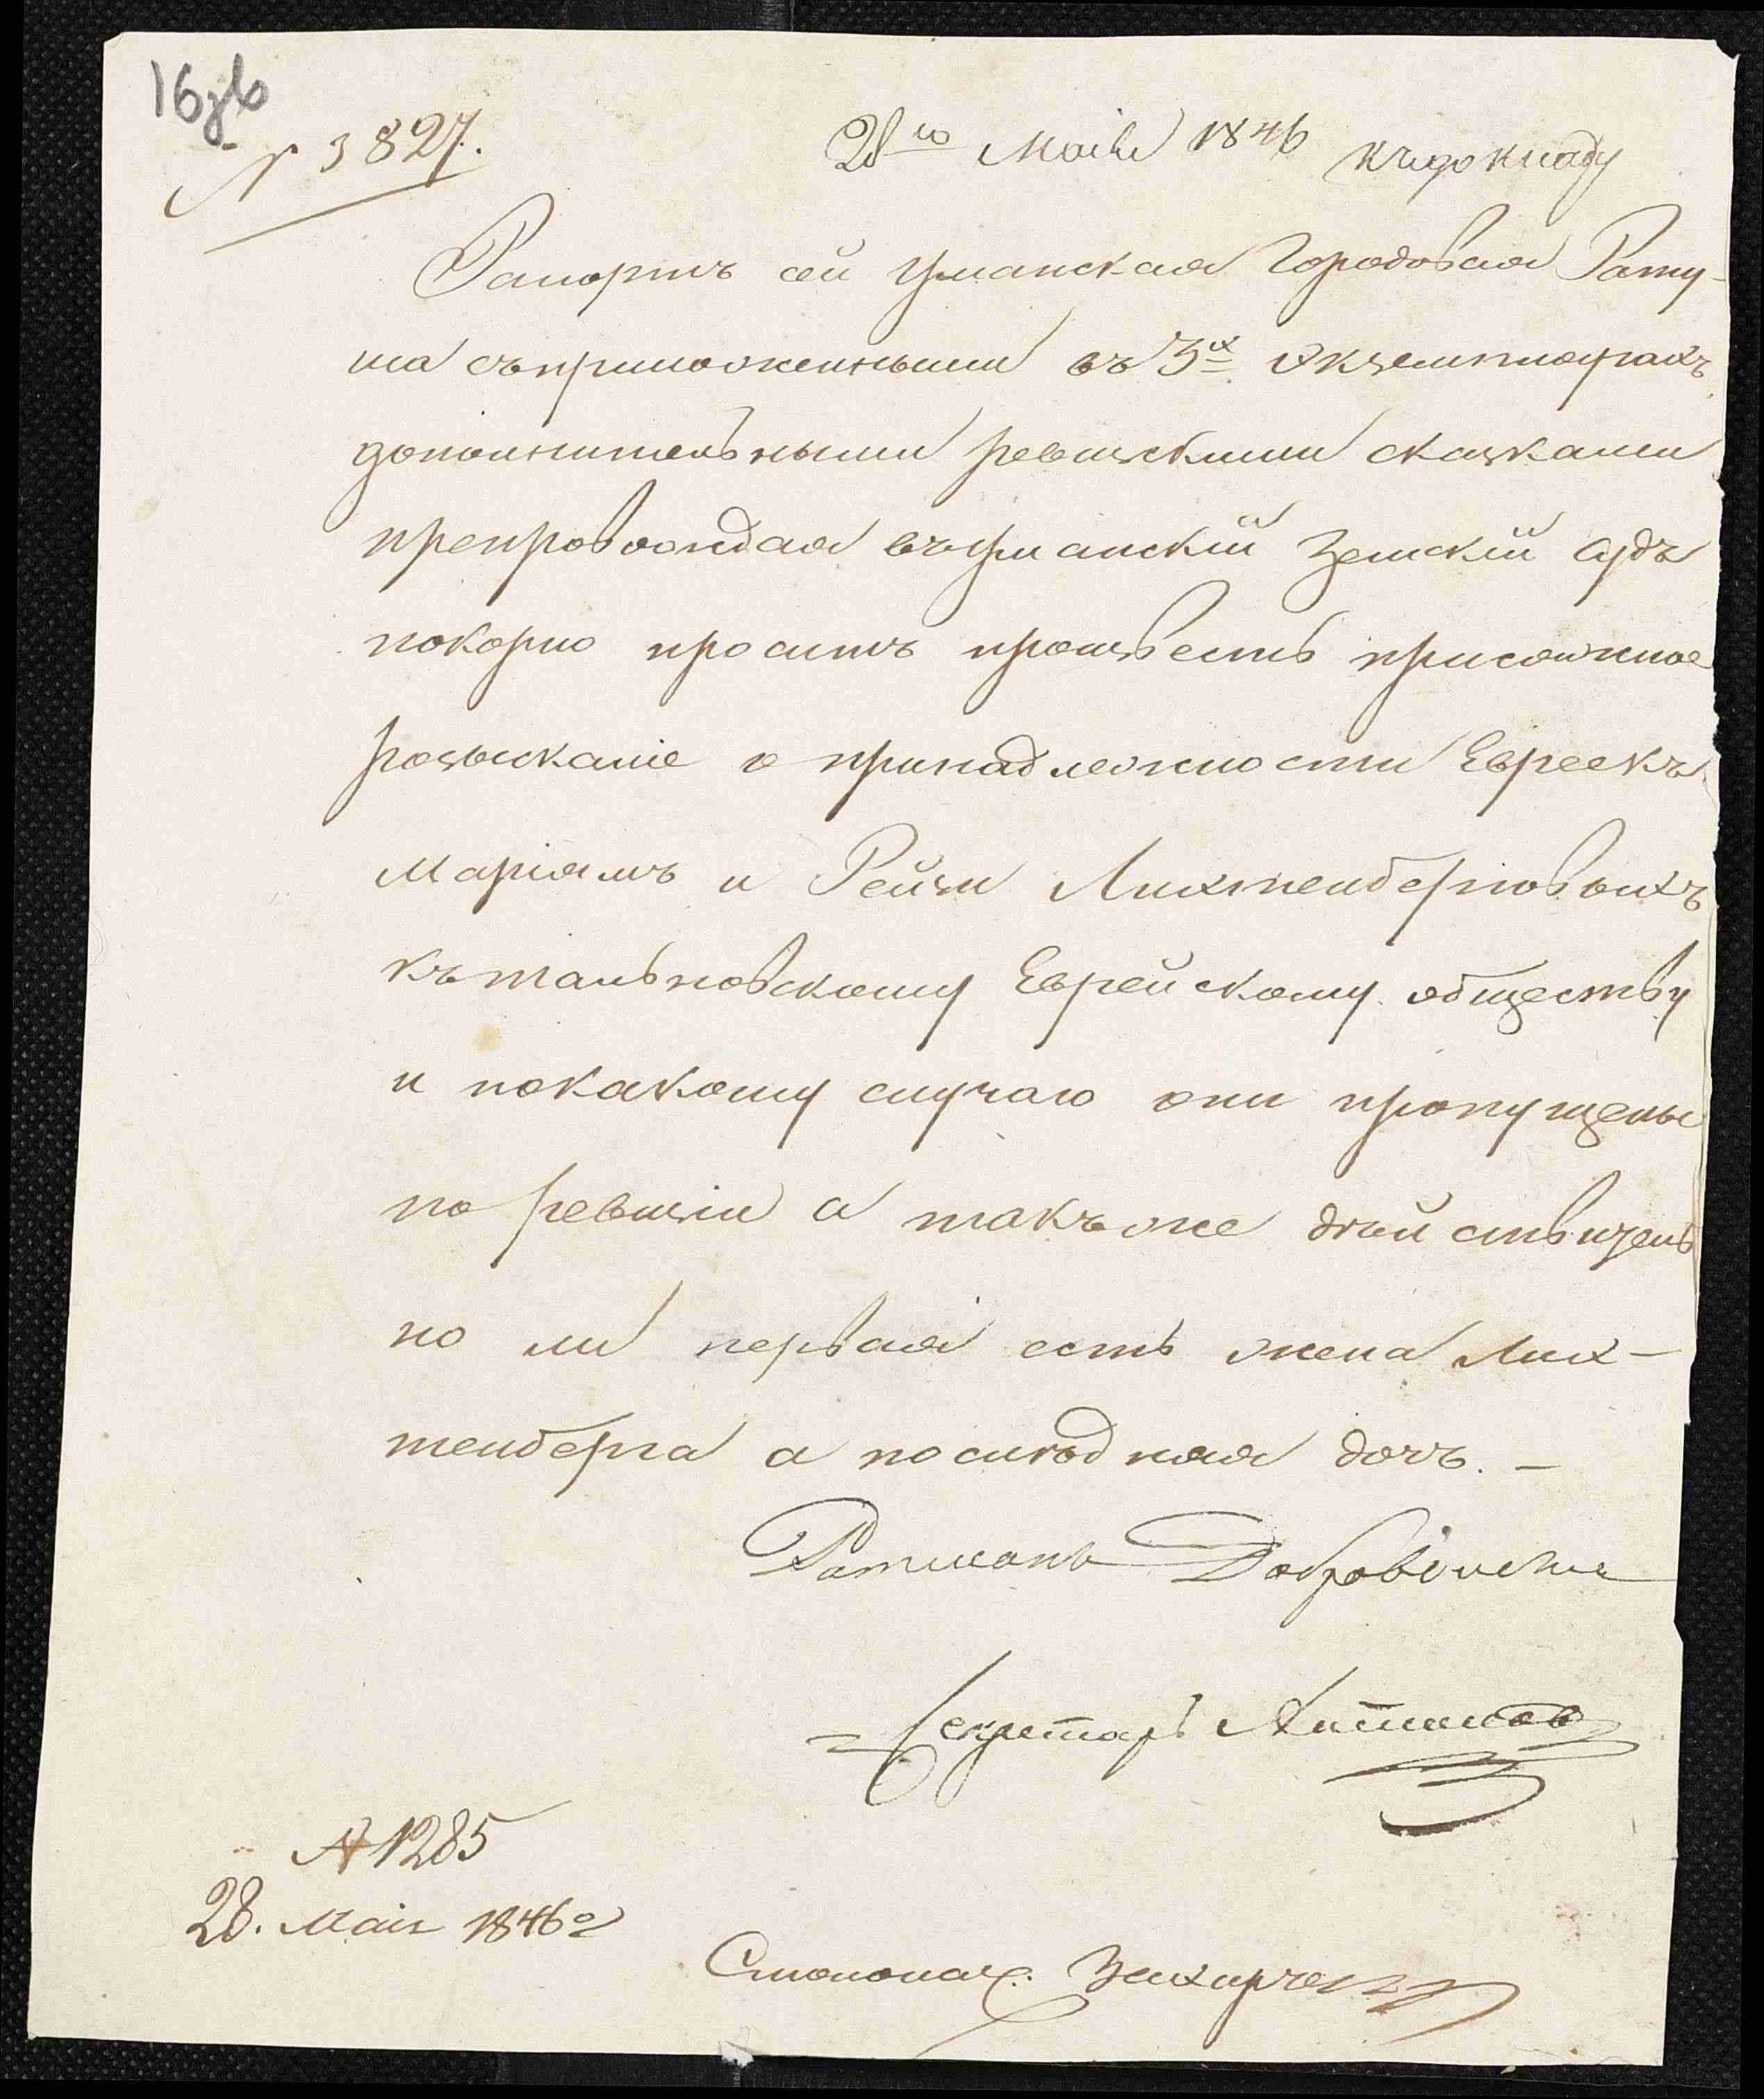 16зв
№ 3827.
28го Маія 1846 къ докладу
Рапортъ сей Уманская Городовая Рату-
ша съ приложенными въ 3х экземплярахъ
дополнительными ревизскими сказками
препровождая въ Уманскій Земскій судъ
покорно проситъ произвесть присяжное
розысканіе о принадлежности Евреекъ
Маріямъ и Рейзи Лихтенберговыхъ
къ тальновскому Еврейскому обществу
и по какому случаю они пропущены
по ревизіи а такъ же дѣйствитель
но ли первая есть жена Лих-
тенберга а послѣдняя дочь. —
Ратманъ
Секретарь
№ 1285
28. Маія 1846 г
Столонач.